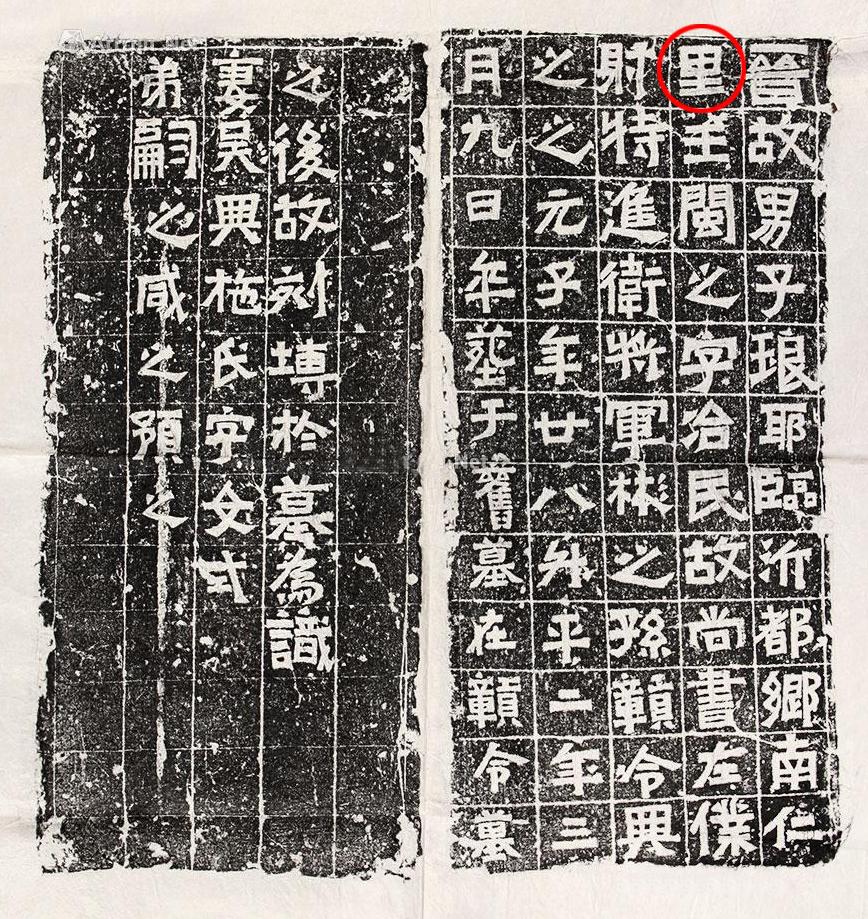 晉故男子琅耶臨沂都鄉南仁
里王閩之字冶民故尚書左僕
射特進衛將軍彬之孫贛令興
之之元子年廿八升平二年三
月九日卒塟于舊墓在贛令墓
之後故刻塼於墓為識
妻吳興施氏字女式
弟嗣之咸之預之